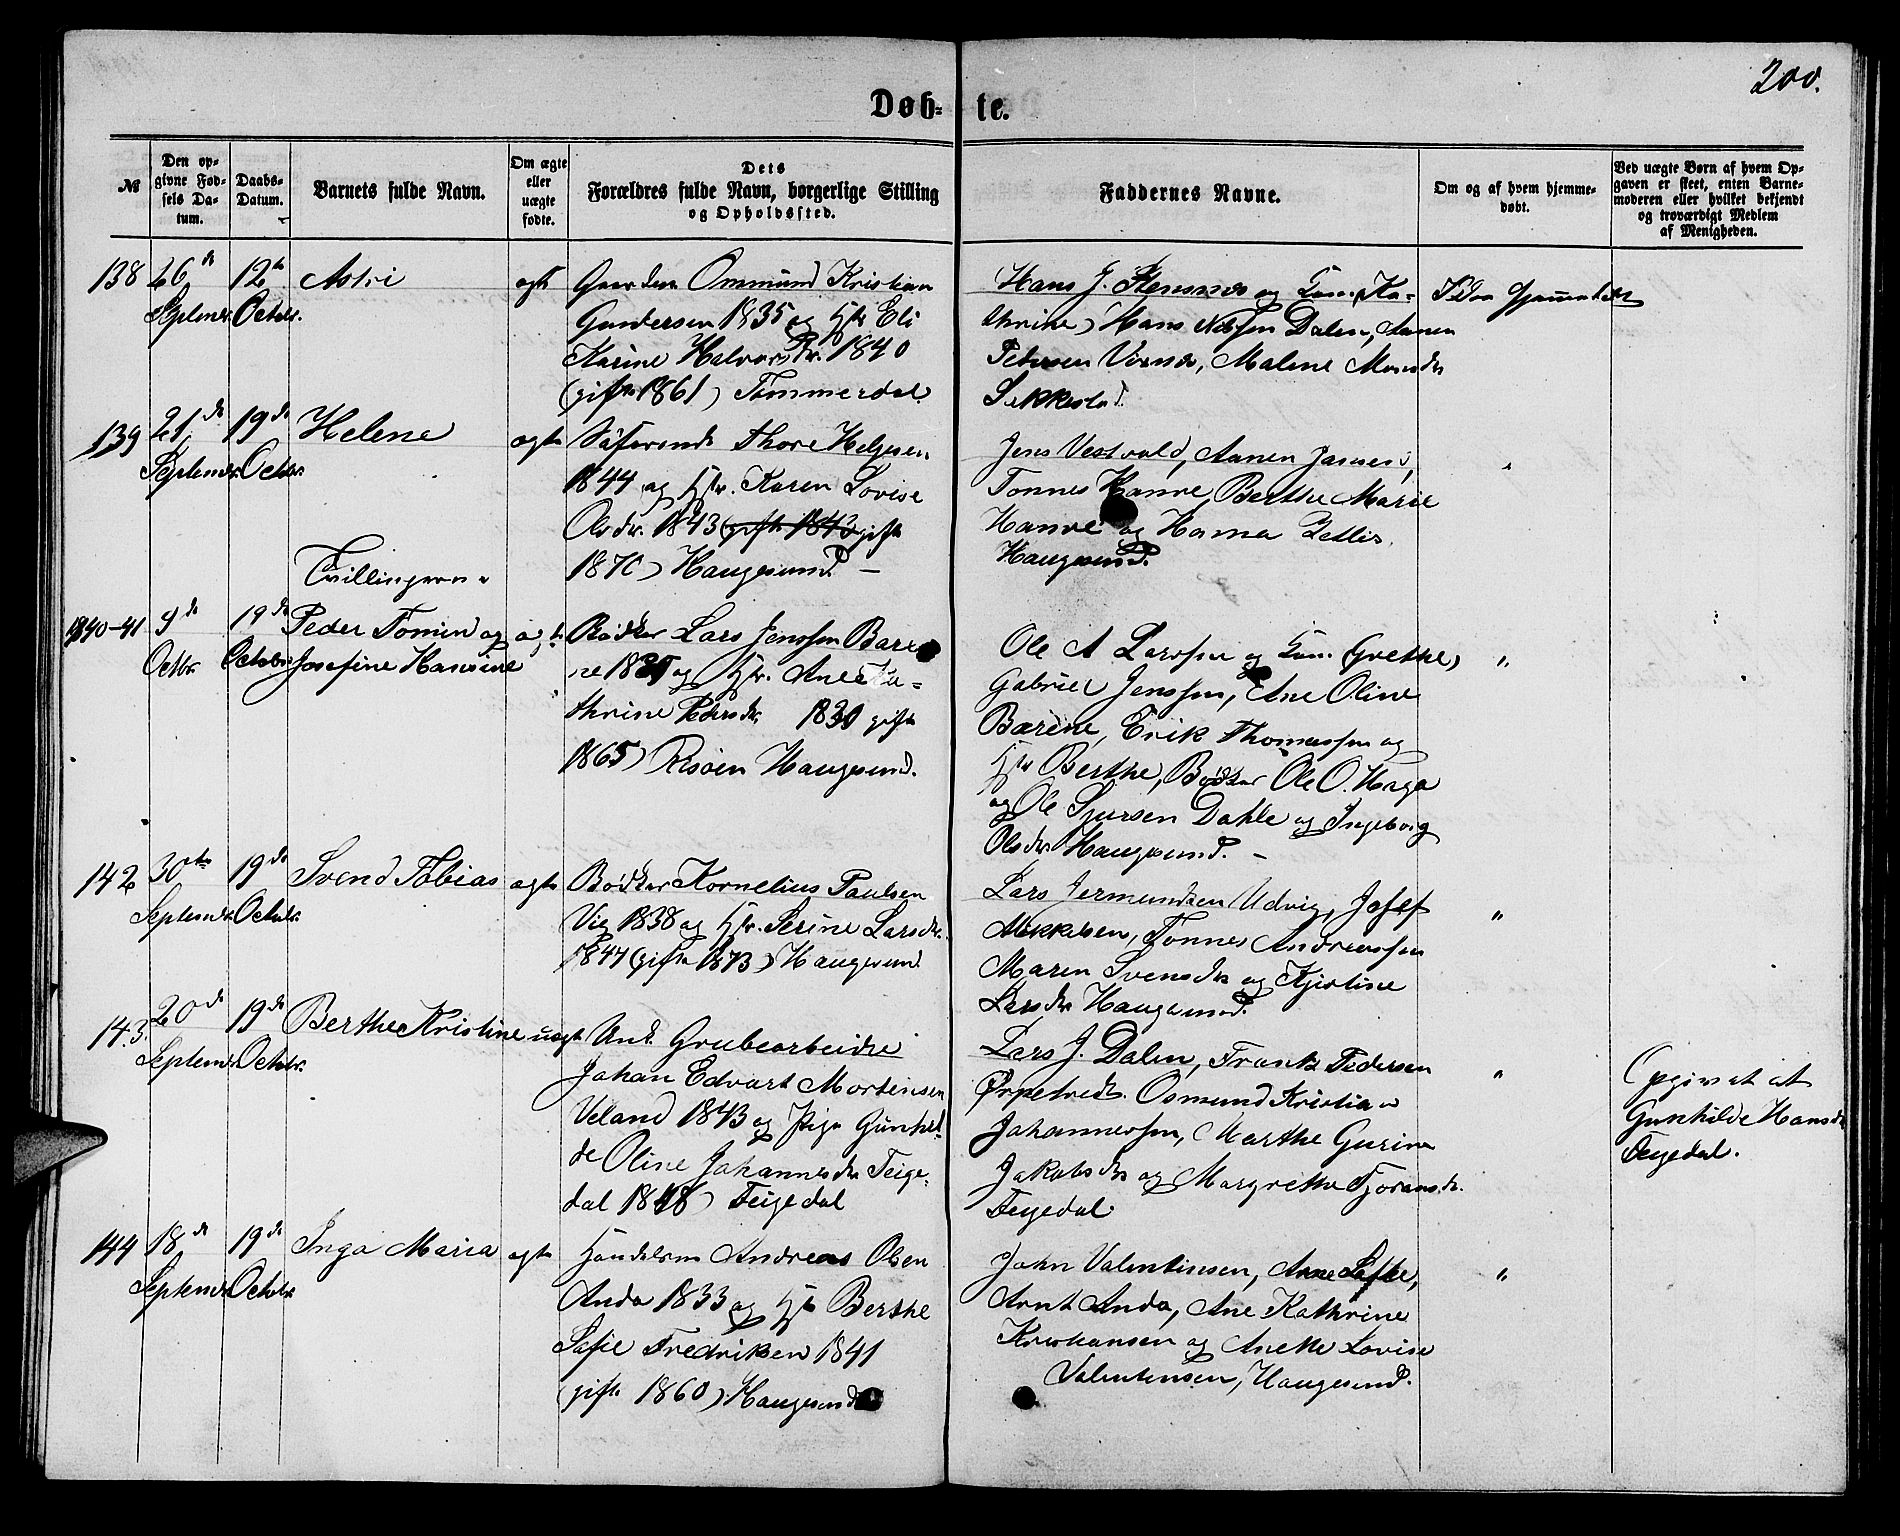 200.
Døb- te.
№
Den opgivne Fødsels Datum.
Daabs-Datum.
Barnets fulde Navn.
Om ægte eller uægte fødte.
Dets Forældres fulde Navn, borgerlige Stilling og Opholdssted.
Faddernes Navne.
Om og af hvem hjemmedøbt.
Ved uægte Børn af hvem Opgaven er skeet, enten Barnemoderen eller hvilket bekjendt og troværdigt Medlem af Menigheden.
138 26de Septembr. 12te Octobr. Astri ægte
Ommund Kristian
Gundersen 1835 og Hstr Eli
Karine Halvorsdr. 1840
(gifte 1861) Tømmerdal
Hans J. Stensnes og Kone (Ka-
thrine) Hans Nilssen Dalen, Aanen
Petersen Vornes, Malene Monsdr
Sekkestad.
139 21de Septembr. 19de Octobr. Helene ægte
Søfarende Thore Helgesen
1844 og Hstr. Karen Lovise
Olsdr. 1843 (gifte 1843 gift
1870) Haugesund. —
Jens Vestvold, Aanen Jansen,
Tønnes Hanve, Berthe Marie
Hanve og Hanna Zetlis.
Haugesund.
Tvillingerne
140-41 9de Octbr 19de Octobr Peder Tomin og Josefine Hansine ægte
Bødker Lars Jenssen Bare-
ne 1835 og Hstr. Ane Ka-
thrine Pedersdr. 1830 gifte
1865) Risøen Haugesund.
Ole A Larssen og Kone (Grethe)
Gabriel Jenssen, Ane Oline
Barene, Erik Thomassen og
Hstr Berthe, Bødker Ole O. Haga
og Ole Sjursen Dahle og Ingeborg
Olsdr Haugesund. —
"
142 30te Septembr. 19de Octobr. Svend Tobias ægte
Bødker Kornelius Paulsen
Vig 1838 og Hstr. Serine Larsdr.
1847 (gifte 1873) Haugesund
Lars Jermundsen Udvig, Josef
Mikkelsen, Tønnes Andreassen
Maren Svensdr og Kjirstine
Larsdr Haugesund.
"
143. 20de Septembr. 19de Octobr. Berthe Kristine uægte
Unk. Grubearbeider
Johan Edvart Mortensen
Veland 1843 og Pige Gunhil-
de Oline Johannesdr Teige-
dal 1848) Teigedal
Lars J. Dalen, Frants Pedersen
Osmund Kristian
Johannessen, Marthe Gurine
Jakobsdr og Margrethe Tjoransdr.
Teigedal.
"
Opgivet at
Gunhilde Hansdr
Teigedal.
144 18de Septembr 19de Octobr Inga Maria ægte
Handelsm Andreas Olsen
Anda 1833 og Hstr Berthe
Sofie Fredriksen 1841
(gifte 1860) Haugesund
John Valentinsen, Anne Løfte,
Arnt Anda, Ane Kathrine
Kristiansen og Anette Lovise
Valentinsen, Haugesund.
"